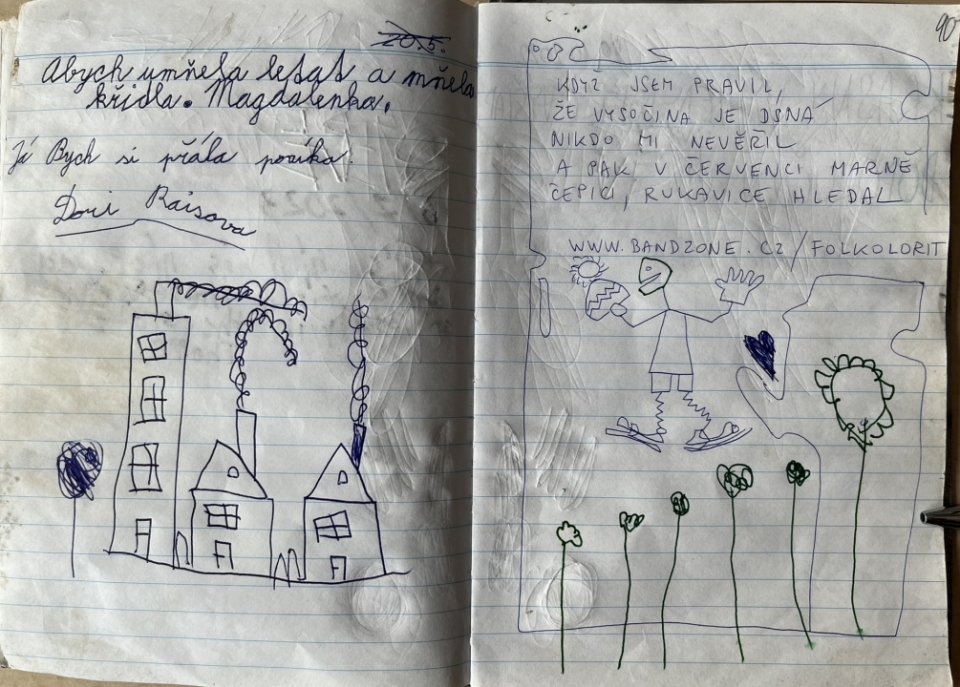 20.5.
Abych umňela letat a mňela
křidla. Magdalenka.
Já Bych si přála poníka.
Dori Raisova
90
KDYŽ JSEM PRAVIL,
ŽE VYSOČINA JE DSNÁ
NIKDO MI NEVĚŘIL
A PAK V ČERVENCI MARNĚ
ČEPICI, RUKAVICE HLEDAL
WWW.BANDZONE.CZ/FOLKOLORIT